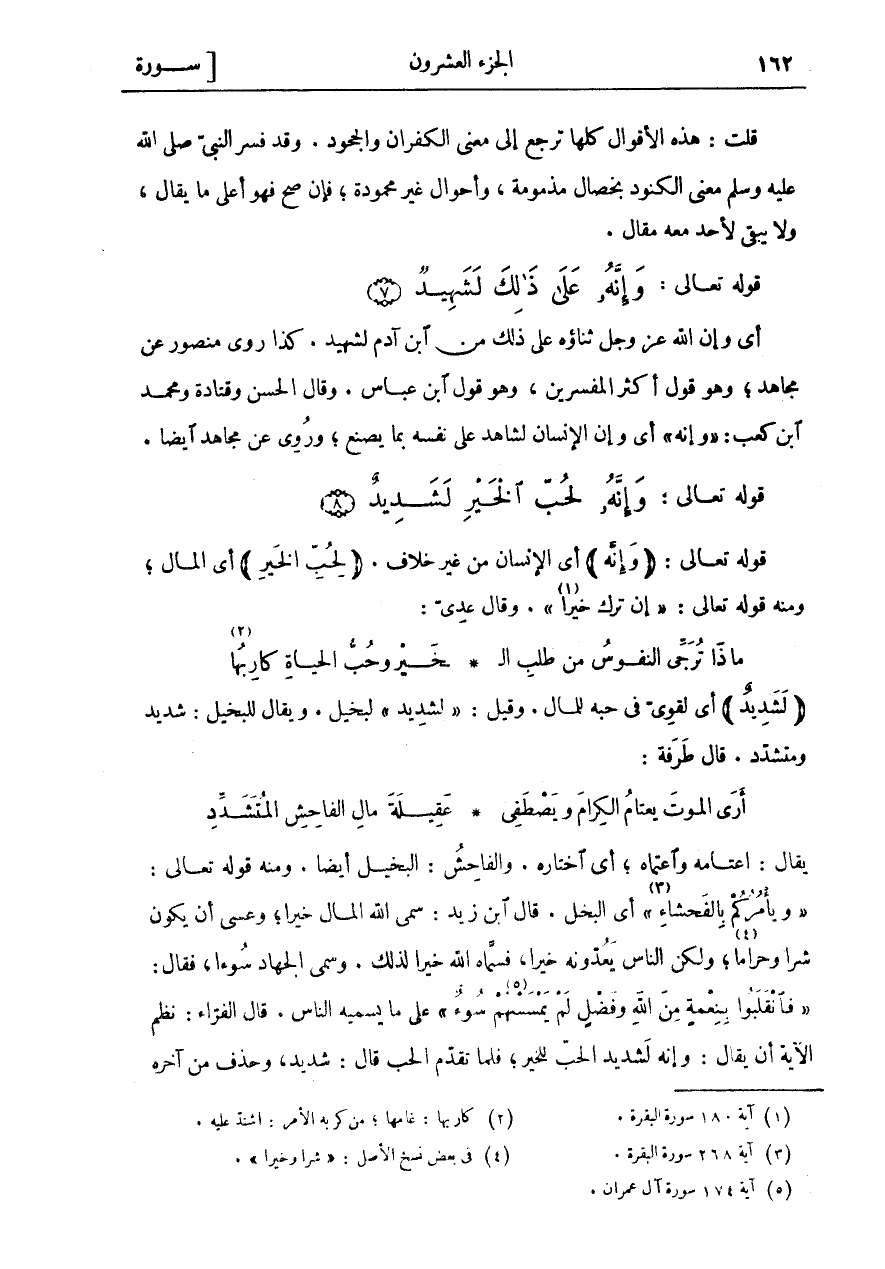 ١٦٢ الجزء العشرون [ ســـورة
قلت : هذه الأقوال كلها ترجع إلى معنى الكفران والجحود . وقد فسر النبىّ صلى الله
عليه وسلم معنى الكنود بخصال مذمومة ، وأحوال غير محمودة ؛ فإن صح فهو أعلى ما يقال ،
ولا يبقى لأحد معه مقال .
قوله تعـالى : وَإِنَّهُۥ عَلَىٰ ذَٰلِكَ لَشَهِيدٌ ﴿٧﴾
أى وإن الله عز وجل ثناؤه على ذلك من ٱبن آدم لشهيد . كذا روى منصور عن
مجاهد ؛ وهو قول أكثر المفسرين ، وهو قول ٱبن عبـاس . وقال الحسن وقتادة ومحمـد
ٱبن كعب : «وإنه» أى وإن الإنسان لشاهد على نفسه بما يصنع ؛ ورُوِى عن مجاهد أيضا .
قوله تعـالى : وَإِنَّهُۥ لِحُبِّ ٱلْخَيْرِ لَشَـــدِيدٌ ﴿٨﴾
قوله تعـالى : ﴿ وَإِنَّه ﴾ أى الإنسان من غير خلاف . ﴿ لِحُبِّ الخَيرِ ﴾ أى المـال ؛
ومنه قوله تعالى : « إن ترك خيرًا (١) » . وقال عدِىّ :
ماذَا تُرَجِّى النفـوسُ من طلبِ الـ * خَـــيْر وحُبُّ الحياةِ كارِبُها (٢)
﴿ لَشَدِيدٌ ﴾ أى لقوِىّ فى حبه للـال . وقيل : « لشديد » لبخيل . ويقال للبخيل : شديد
ومتشدّد . قال طَرَفة :
أرَى الموتَ يعتامُ الكِرامَ ويَصْطَفِى * عَقِيـــلَةَ مالِ الفاحِشِ المُتَشَـدِّدِ
يقال : اعتـامه وٱعتماه ؛ أى ٱختاره . والفاحِشُ : البخيـل أيضا . ومنه قوله تعـالى :
« ويأمُرُكُمْ بِالفَحشاءِ (٣) » أى البخل . قال ٱبن زيد : سمى الله المـال خيرا ؛ وعسى أن يكون
شرا وحراما (٤) ؛ ولكن الناس يَعُدّونه خيرا، فسمَّاه الله خيرا لذلك . وسمى الجهاد سُوءا ، فقال :
« فٱنْقَلَبُوا بِنِعْمةٍ مِنَ اللَّهِ وفَضْلٍ لَمْ يَمْسَسْهُمْ سُوءٌ (٥) » على ما يسميه الناس . قال الفرّاء : نظم
الآية أن يقال : وإنه لَشديد الحبّ للخير ؛ فلما تقدّم الحب قال : شديد، وحذف من آخره
(١) آية ١٨٠ سورة البقرة . (٢) كاربها : غامها ؛ من كربه الأمر : اشتدّ عليه .
(٣) آية ٢٦٨ سورة البقرة . (٤) فى بعض نسخ الأصل : « شرا وخيرا » .
(٥) آية ١٧٤ سورة آل عمران .